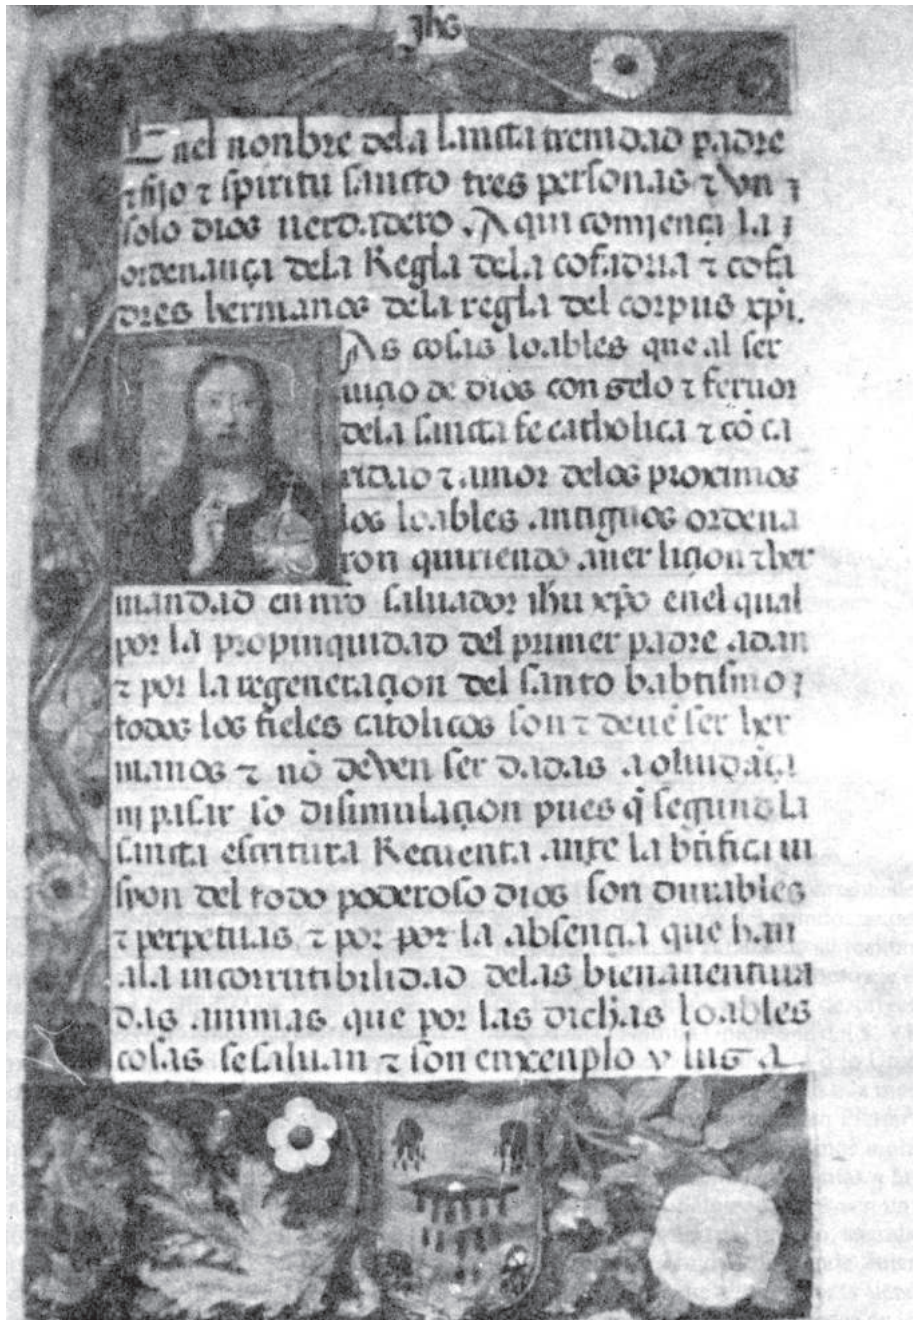 Jhs
En el nonbre dela sancta trenidad padre
⁊ fijo ⁊ spiritu sancto tres personas ⁊ vn
solo dios uerdadero. Aqui comiença la
ordenança dela Regla dela cofadria ⁊ cofa
dres hermanos dela regla del corpus xp̄i.
As cosas loables que al ser
uiçio de dios con zelo ⁊ feruor
dela sancta fe catholica ⁊ cō ca
ridad ⁊ amor delos proximos
los loables antiguos ordena
ron quiriendo auer liçion ⁊ her
mandad en nr̄o saluador ihu xp̄o enel qual
por la propinquidad del primer padre adan
⁊ por la regeneraçion del santo babtismo
todos los fieles catolicos son ⁊ deuē ser her
manos ⁊ nō deven ser dadas a oluidāça
nj pasar so disimulaçion pues q̄ segund la
sancta escritura Recuenta ante la
del todo poderoso dios son durables
⁊ perpetuas ⁊ por por la absencia que han
ala incorrutibilidad delas bienauentura
das animas que por las dichas loables
cosas se saluan ⁊ son enxenplo y